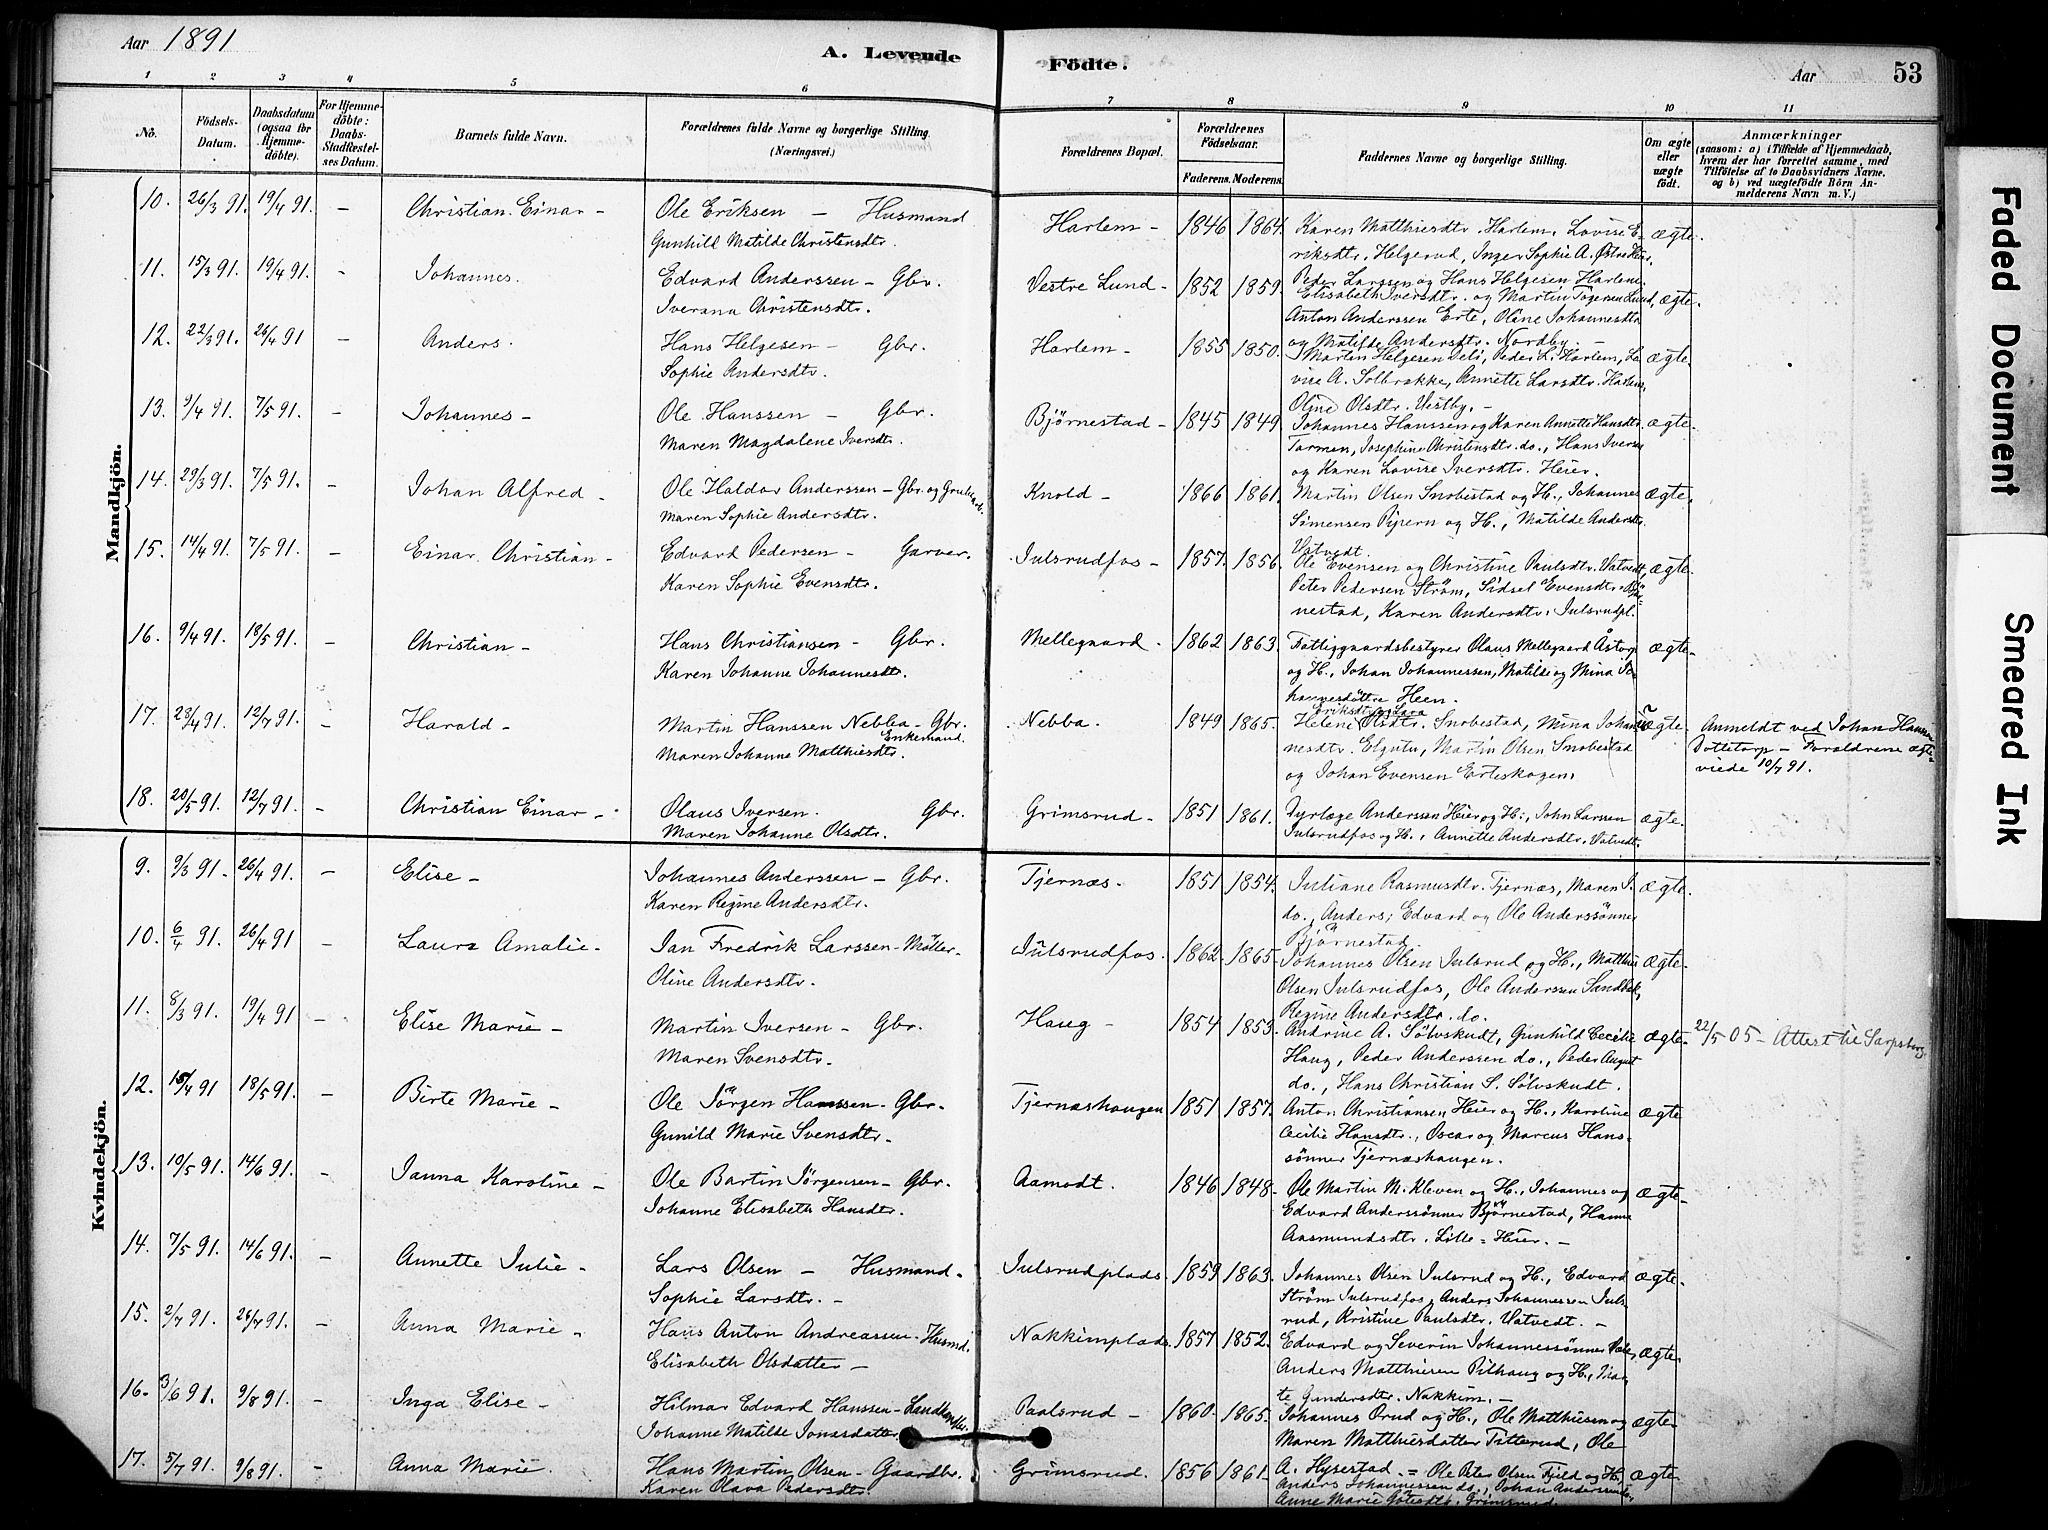 Aar 1891
A. Levende Födte.
Aar
53
1 2 3 4 5 6 7 8 9 10 11
No.
Födsels-Datum.
Daabsdatum (ogsaa for Hjemmedöbte).
For Hjemmedöbte: Daabs-Stadfæstelses Datum.
Barnets fulde Navn.
Forældrenes fulde Navne og borgerlige Stilling.
(Næringsvei.)
Forældrenes Bopæl.
Forældrenes Födselsaar.
Faderens. Moderens.
Faddernes Navne og borgerlige Stilling.
Om ægte eller uægte födt.
Anmærkninger
(saasom: a) i Tilfælde af Hjemmedaab, hvem der har forrettet samme, med Tilföielse af to Daabsvidners Navne, og b) ved uægtefödte Börn Anmelderens Navn m. V.)
Mandkjön.
10. 26/3 91. 19/4 91. - Christian Einar - Ole Eriksen - Husmand Harlem - 1846 1864. Karen Matthiesdtr. Harlem, Lovise E- ægte.
Gunhild Matilde Christensdtr. riksdtr. Helgerud, Inger Sophie A.
11. 15/3 91. 19/4 91. - Johannes. Edvard Anderssen - Gbr. Vestre Lund - 1852 1859. Peder Larssen og Hans Helgesen Harlem ægte.
Elisabeth Iversdtr. og Martin
Iverana Christensdtr. Anton Anderssen Erte, Oline Johannesdtr.
og Matilde Andersdtr. Nordby -
12. 22/3 91. 26/4 91 - Anders. Hans Helgesen - Gbr. Harlem - 1855 1850. Martin Helgesen Peder L. Harlem, Lo- ægte
Sophie Andersdtr. vise A. Solbrække, Annette Larsdtr. Harlem,
Oline Olsdtr. Vestby. -
13. 9/4 91. 7/5 91. - Johannes - Ole Hanssen - Gbr. Bjørnestad - 1845 1849 Johannes Hanssen og Karen Annette Hansdtr. ægte.
Maren Magdalene Iversdtr. Torman, Josephine Christensdtr. do., Hans Iversen
og Karen Lovise Iversdtr. Heier.
14. 29/3 91. 7/5 91. - Johan Alfred - Ole Haldor Anderssen - Gbr. og Knold - 1866 1861. Martin Olsen Snobestad og H., Johannes ægte.
Maren Sophie Andersdtr. Simensen Pipern og H., Matilde Andersdtr.
Vatvedt.
15. 14/4 91. 7/5 91. - Einar Christian - Edvard Pedersen - Garver. Julsrudfos - 1857. 1856. Ole Evensen og Christine Paulsdtr. Vatvedt, ægte.
Karen Sophie Evensdtr. Peter Pedersen Ström, Sidsel Evensdtr. Bjør-
nestad, Karen Andersdtr. Julsrudpl.
16. 9/4 91. 18/5 91. - Christian - Hans Christiansen - Gbr. Mellegaard. 1862 1863. Fattiggaardsbestyrer Olaus Mellegaard Åstorp ægte -
Karen Johanne Johannesdtr. og H., Johan Johannessen, Matilde og Mina Jo-
hannesdöttre Heen.
17. 28/4 91. 12/7 91. - Harald - Martin Hanssen Nebba - Gbr. Enkemand. Nebba. 1849 1865. Helene Olsdtr. Snobestad, Mina Johan- ægte. Anmeldt ved Johan Hansen
Maren Johanne Matthiesdtr. nesdtr. Elgutu, Martin Olsen Snobestad Dottetorp - Forældrene ægte-
og Johan Evensen Erteskogen. viede 10/7 91.
18. 20/5 91. 12/7 91. - Christian Einar - Olaus Iversen. Gbr. Grimsrud. 1851 1861. Fyrløge Anderssen Heier og H., John Larssen ægte.
Maren Johanne Olsdtr. Julsrudfos og H., Annette Andersdtr. Vatvedt.
Kvindekjön.
9. 9/3 91. 26/4 91. - Elise - Johannes Anderssen - Gbr. Tjernæs. 1851 1854. Juliane Rasmusdtr. Tjernæs, Maren J. ægte.
Karen Regine Andersdtr. do., Anders, Edvard og Ole Anderssönner
Bjørnestad.
10. 6/4 91. 26/4 91 - Laura Amalie - Jan Fredrik Larssen - Möller - Julsrudfos. 1862. 1865. Johannes Olsen Julsrud og H., Matthis ægte.
Oline Andersdtr. Olsen Julsrudfos, Ole Anderssen Sandbæk,
Regine Andersdtr. do.
11. 8/3 91. 19/4 91 - Elise Marie - Martin Iversen - Gbr. Haug - 1854 1853. Andrine A. Sölvskudt, Gunhild Cecilie ægte. 22/5 05 - Attest til Sarpsborg.
Maren Svensdtr. Haug, Peder Anderssen do., Peder August
do., Hans Christian S. Sölvskudt.
12. 15/4 91 18/5 91. - Birte Marie - Ole Jörgen Hanssen - Gbr. Tjernæshaugen 1851 1857. Anton Christiansen Heier og H., Karoline ægte
Gunild Marie Svensdtr. Cecilie Hansdtr., Oscar og Marcus Hans-
sönner Tjernæshaugen.
13. 10/5 91. 14/6 91. - Janna Karoline - Ole Bartin Jörgensen - Gbr. Aamodt. 1846 1848. Ole Martin M. Kleven og H., Johannes og ægte -
Johanne Elisabeth Hansdtr. Edvard Anderssönner Bjørnestad, Hanna
Aasmundsdtr. Lille-Heier. -
14. 7/5 91. 14/6 91. - Annette Julie - Lars Olsen - Husmand. Julsrudplads. 1859 1863. Johannes Olsen Julsrud og H., Edvard ægte.
Sophie Larsdtr. - Ström Julsrudfos, Anders Johannessen Juls-
rud, Kristine Paulsdtr. Vatvedt. -
15. 2/7 91. 26/7 91. - Anna Marie - Hans Anton Andreassen - Husmd. Nakkimplads. 1857 1852. Edvard og Severin Johannessönner ægte.
Elisabeth Olsdatter - Anders Matthiesen Pilhaug og H.,
Nakkim. -
16. 3/6 91. 9/8 91. - Inga Elise - Hilmar Edvard Hanssen - Paalsrud - 1860. 1865. Johannes Orud og H., Ole Matthiesen og ægte
Johanne Matilde Jonasdatter Maren Matthiesdatter Titterud, Ole
17. 5/7 91. 9/8 91. - Anna Marie. Hans Martin Olsen - Gaardbr. Grimsrud. 1856 1861. A. Hysestad. = Ole Peter Olsen Fjeld og H., ægte
Karen Olava Pedersdtr. Anders Johannessen do., Johan Anderssen
Anne Marie Grimsrud.
Faded Document
Smeared Ink